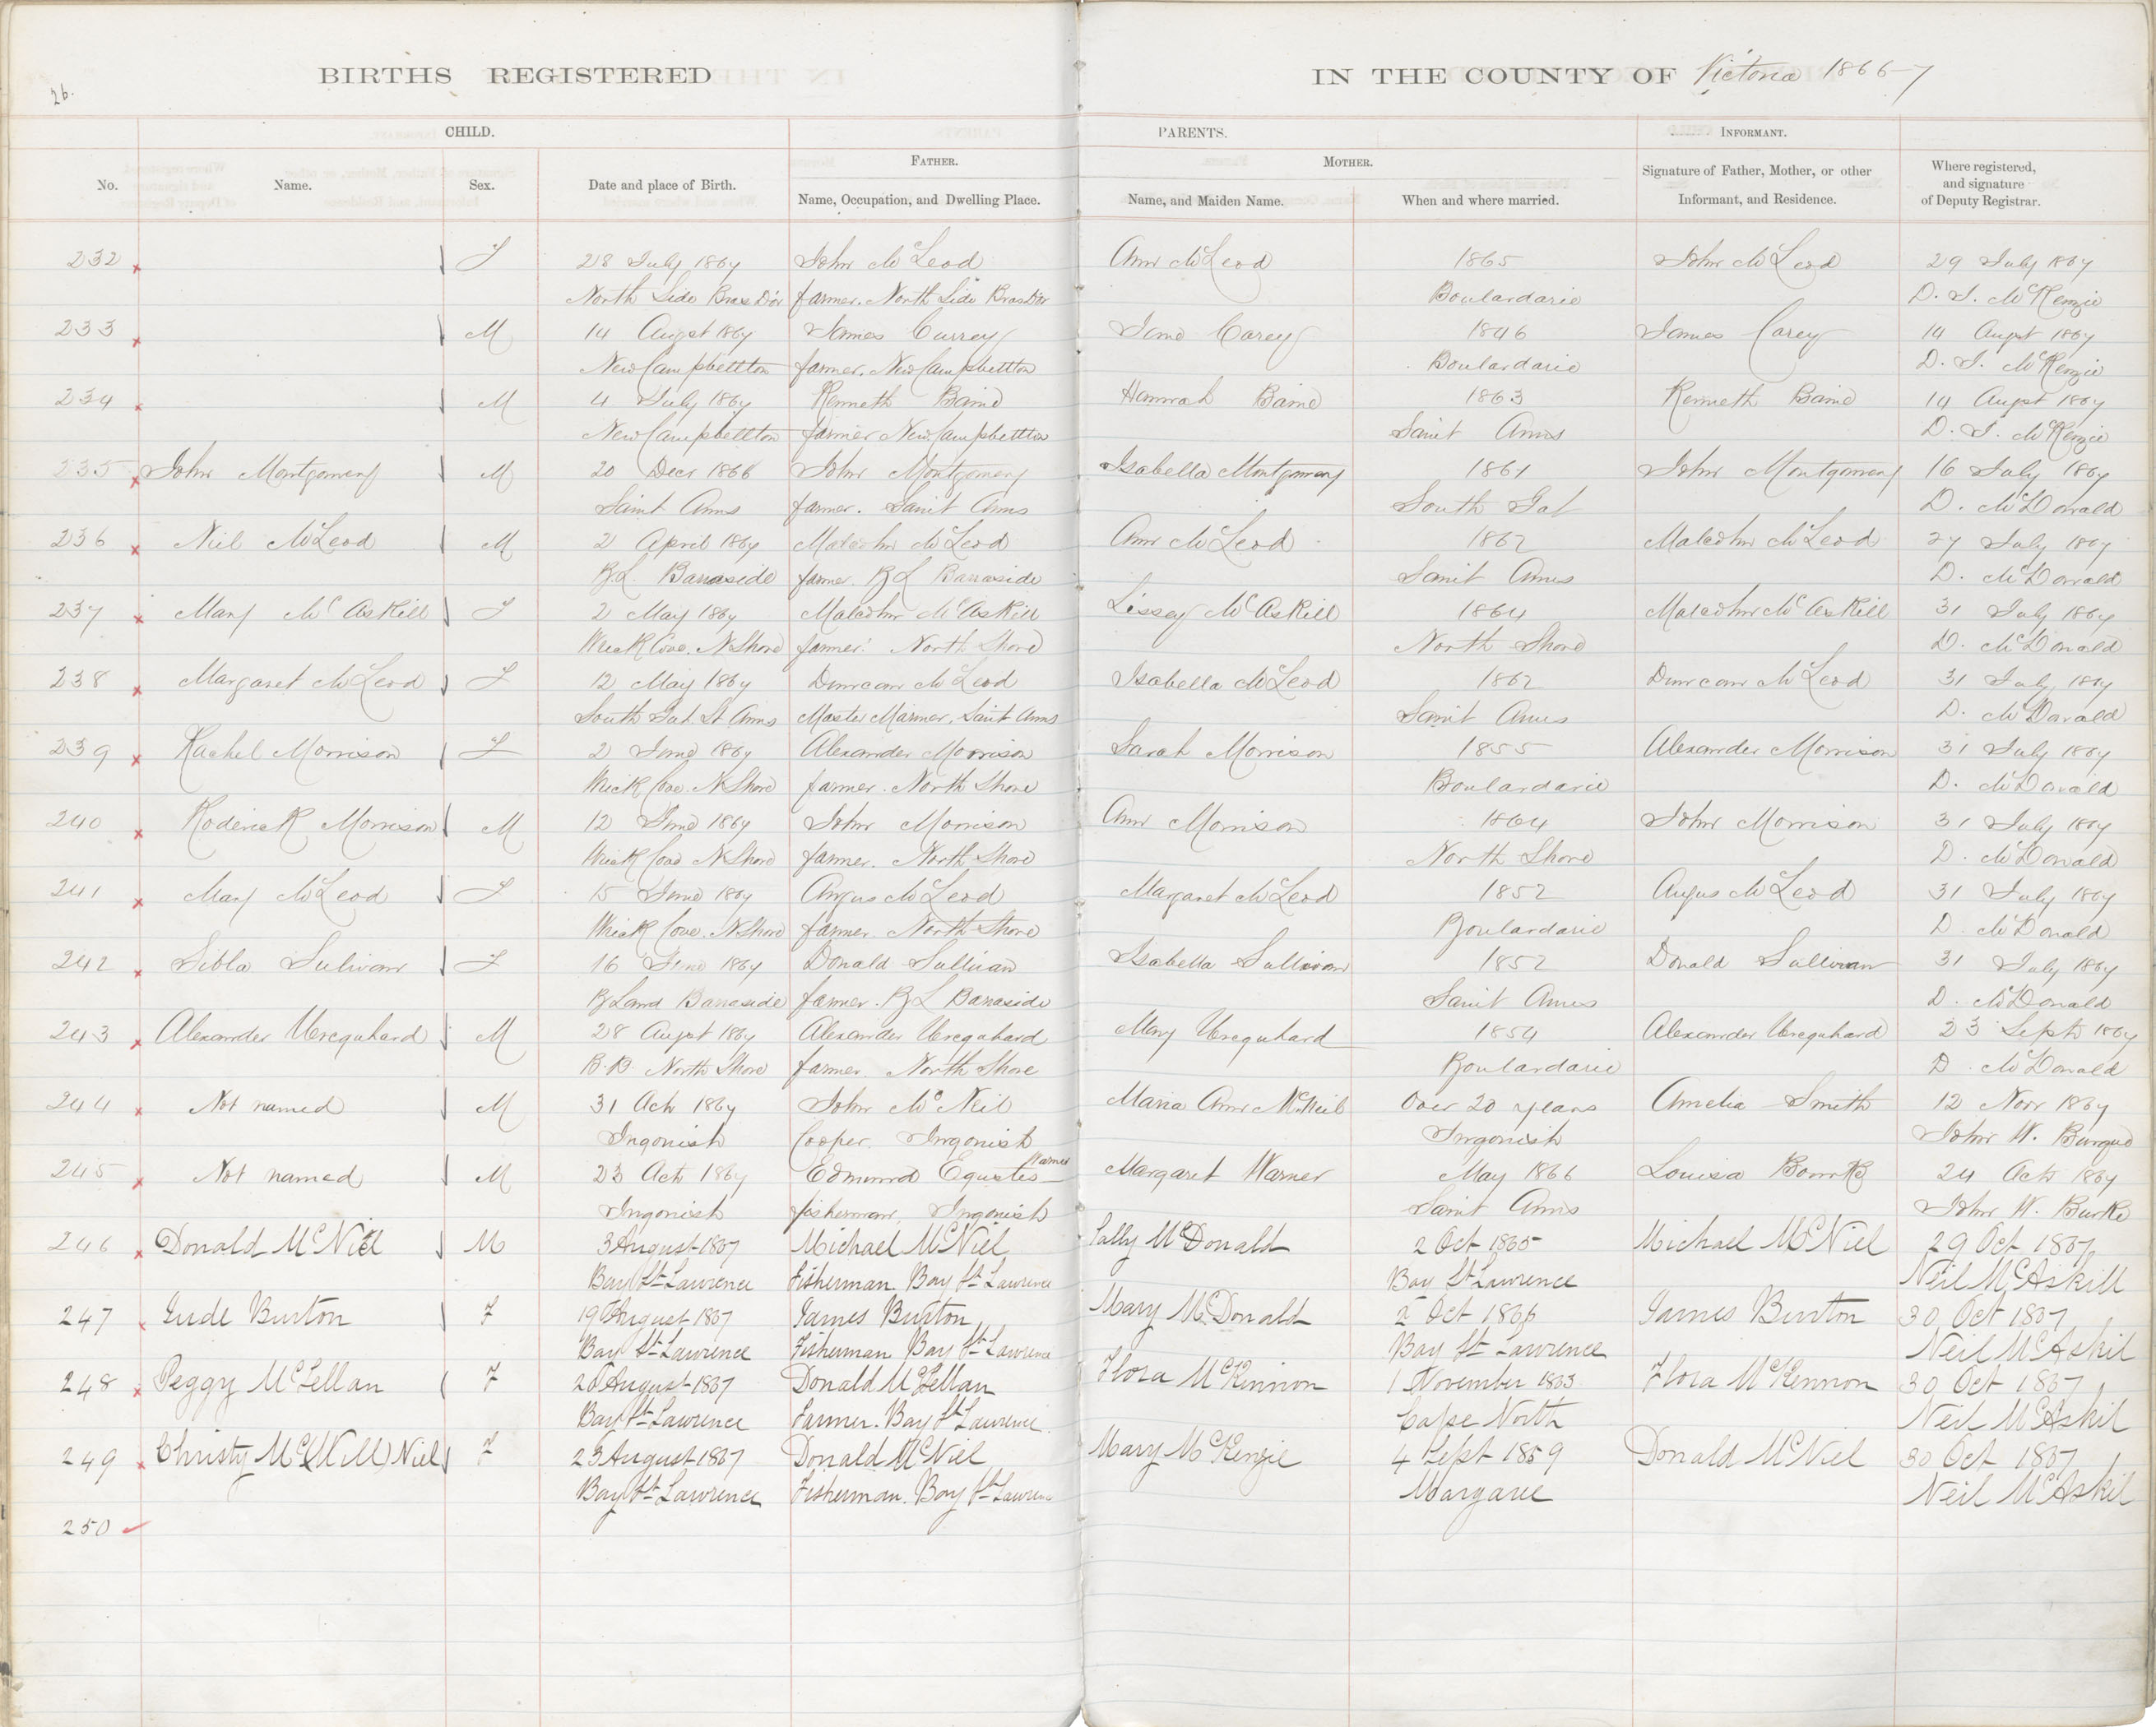 BIRTHS REGISTERED IN THE COUNTY OF Victoria 1866-7
26.
CHILD. PARENTS. INFORMANT.
FATHER. MOTHER.
No. Name. Sex. Date and place of Birth. Name, Occupation, and Dwelling Place. Name, and Maiden Name. When and where married. Signature of Father, Mother, or other Informant, and Residence. Where registered, and signature of Deputy Registrar.
232 F 28 July 1867 John McLeod Ann McLeod 1865 John McLeod 29 July 1867
North Side Bras D'or farmer. North Side Bras D'or Boulardarie D. J. McKenzie
233 M 14 Augst 1867 James Currey Jane Carey 1846 James Carey 14 Augst 1867
New Campbellton farmer. New Campbellton Boulardarie D. J. McKenzie
234 M 4 July 1867 Kenneth Baine Hannah Baine 1863 Kenneth Baine 14 Augst 1867
New Campbellton farmer New Campbellton Saint Anns D. J. McKenzie
235 John Montgomery M 20 Decr 1866 John Montgomery Isabella Montgomery 1861 John Montgomery 16 July 1867
Saint Anns farmer. Saint Anns South Gat D. McDonald
236 Niel McLeod M 2 April 1867 Malcolm McLeod Ann McLeod 1862 Malcolm McLeod 27 July 1867
R L Barraside farmer. R L Barraside Saint Anns D. McDonald
237 Mary McAskill F 2 May 1867 Malcolm McAskill Lissey McAskill 1864 Malcolm McAskill 31 July 1867
Wreck Cove. N Shore farmer. North Shore North Shore D. McDonald
238 Margaret McLeod F 12 May 1867 Duncan McLeod Isabella McLeod 1862 Duncan McLeod 31 July 1867
South Gut St Anns Master Mariner. Saint Anns Saint Anns D. McDonald
239 Rachel Morrison F 2 June 1867 Alexander Morrison Sarah Morrison 1855 Alexander Morrison 31 July 1867
Wreck Cove. N Shore farmer. North Shore Boulardarie D. McDonald
240 Roderick Morrison M 12 June 1867 John Morrison Ann Morrison 1864 John Morrison 31 July 1867
Wreck Cove N Shore farmer. North Shore North Shore D. McDonald
241 Mary McLeod F 15 June 1867 Angus McLeod Margaret McLeod 1852 Angus McLeod 31 July 1867
Wreck Cove. N Shore farmer. North Shore Boulardarie D. McDonald
242 Sibla Sulivan F 16 June 1867 Donald Sullivan Isabella Sullivan 1852 Donald Sullivan 31 July 1867
R Land Barraside farmer. R L Barraside Saint Anns D. McDonald
243 Alexander Urequhard M 28 Augst 1867 Alexander Urequhard Mary Urequhard 1854 Alexander Urequhard 23 Septr 1867
B.B. North Shore farmer. North Shore Boulardarie D. McDonald
244 Not named M 31 Octr 1867 John McNeil Maria Ann McNeil Over 20 years Amelia Smith 12 Novr 1867
Ingonish Cooper. Ingonish Ingonish John W.
245 Not named M 23 Octr 1867 Edmund Warner Margaret Warner May 1866 Louisa 24 Octr 1867
Ingonish fisherman, Ingonish Saint Anns John W. Burke
246 Donald McNiel M 3 August 1867 Michael McNiel Sally McDonald 2 Oct 1865 Michael McNiel 29 Oct 1867
Bay St Lawrence Fisherman Bay St Lawrence Bay St Lawrence Neil McAskill
247 Jude Burton F 19 August 1867 James Burton Mary McDonald 2 Oct 1866 James Burton 30 Oct 1867
Bay St Lawrence Fisherman Bay St Lawrence Bay St Lawrence Neil McAskil
248 Peggy McLellan F 20 August 1867 Donald McLellan Flora McKinnon 1 November 1863 Flora McKennon 30 Oct 1867
Bay St Lawrence Farmer. Bay St Lawrence Cape North Neil McAskil
249 Christy Mc(Will) Niel F 23 August 1867 Donald McNiel Mary McKenzie 4 Sept 1859 Donald McNiel 30 Oct 1867
Bay St Lawrence Fisherman. Bay St Lawrence Margaree Neil McAskil
250